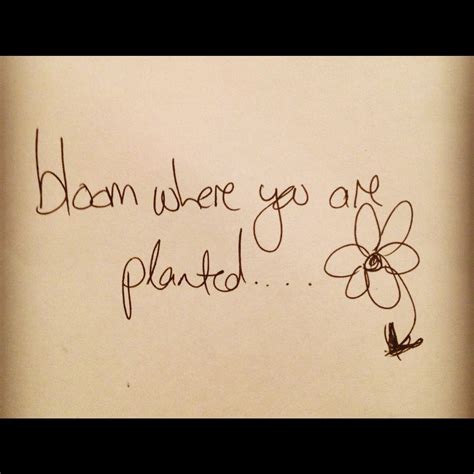 bloom where you are
planted.....